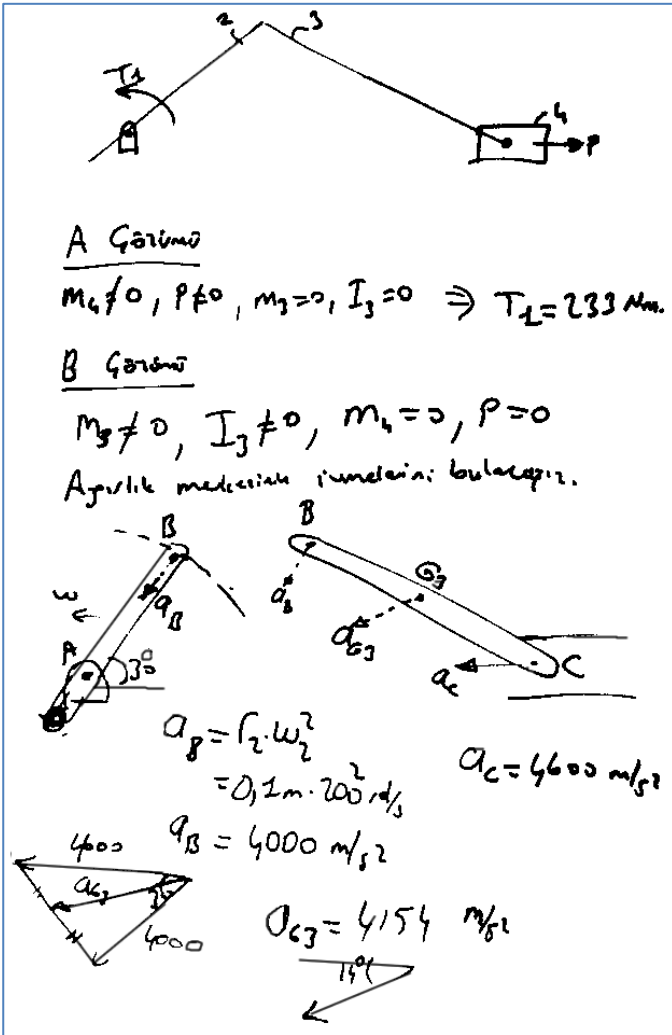 2 3
T1
4
P
A Çözümü
m₄≠0, P≠0, m₃=0, I₃=0 ⇒ T₁=233 Nm.
B Çözümü
m₃≠0, I₃≠0, m₄=0, P=0
Ağırlık merkezinin ivmelerini bulacağız.
B B
ω a_B a_B G₃
A a_G3
30° a_C C
a_B = r₂·ω₂²
= 0,1m·200² rd/s
a_C = 4600 m/s²
a_B = 4000 m/s²
4000
a_G3
4000
a_G3 = 4154 m/s²
14°